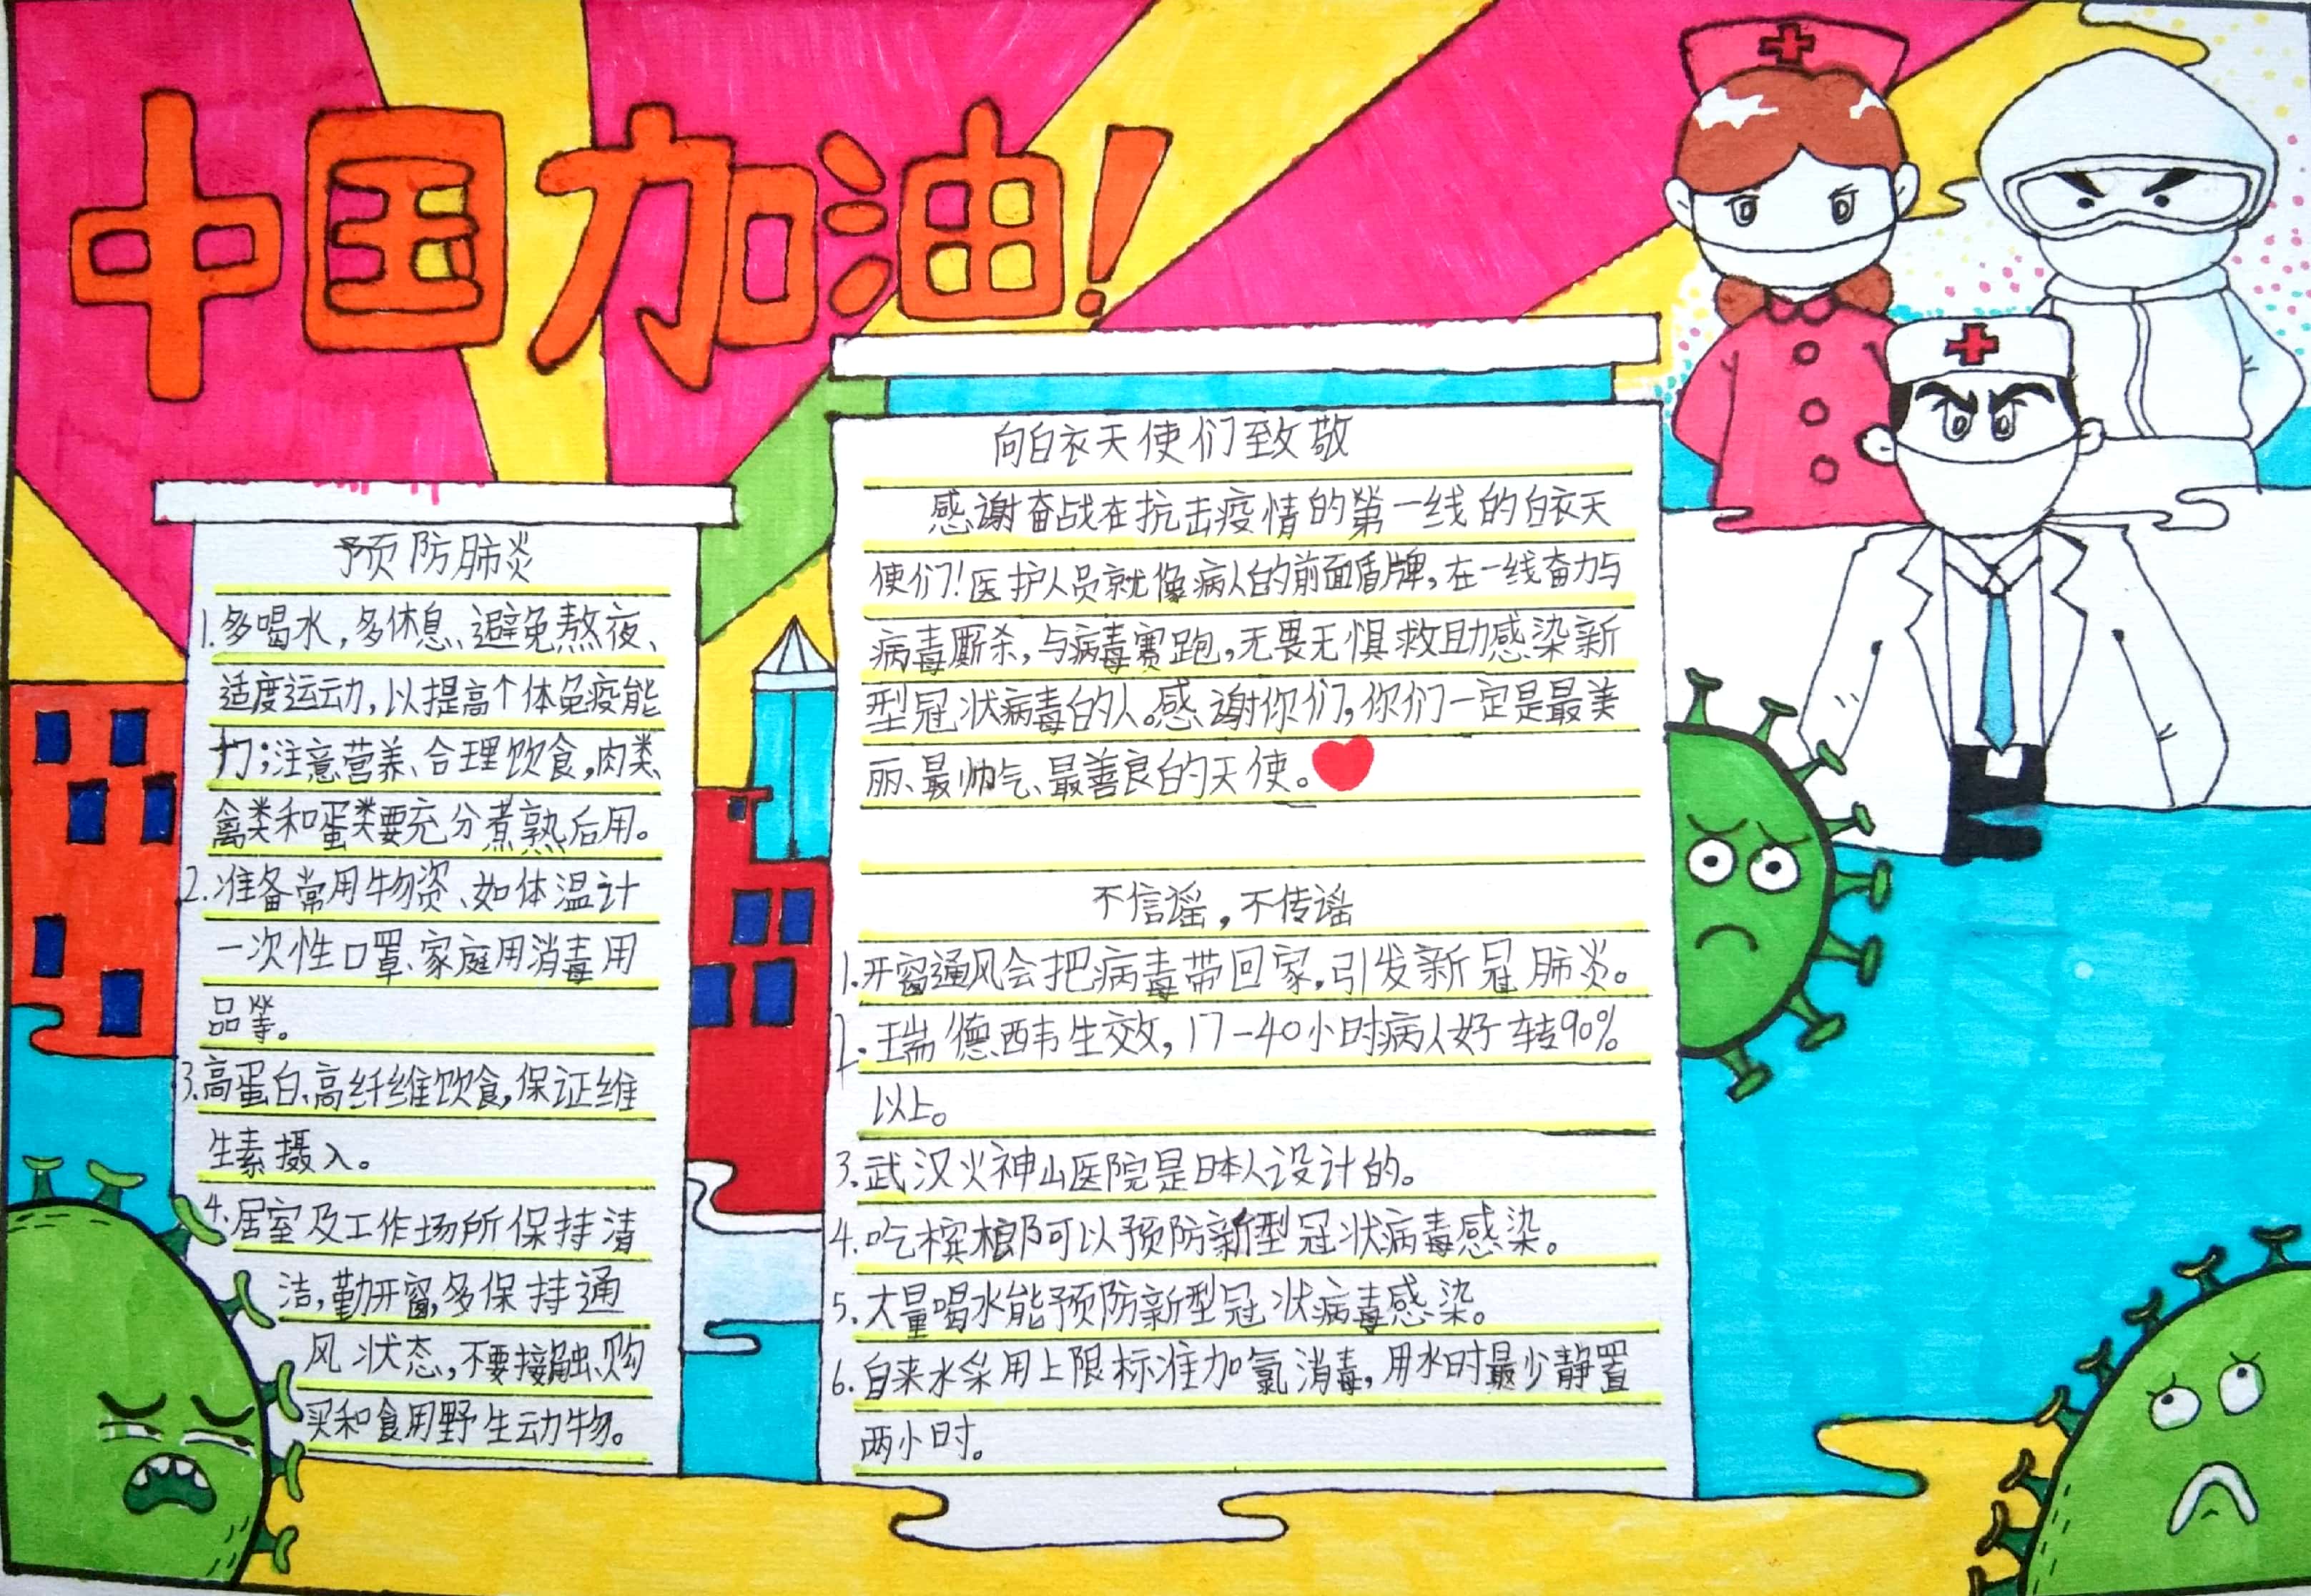 中国加油!
预防肺炎
1.多喝水,多休息、避免熬夜、
适度运动,以提高个体免疫能
力;注意营养、合理饮食,肉类、
禽类和蛋类要充分煮熟后用。
2.准备常用物资、如体温计
一次性口罩、家庭用消毒用
品等。
3.高蛋白、高纤维饮食,保证维
生素摄入。
4.居室及工作场所保持清
洁,勤开窗,多保持通
风状态,不要接触、购
买和食用野生动物。
向白衣天使们致敬
感谢奋战在抗击疫情的第一线的白衣天
使们!医护人员就像病人的前面盾牌,在一线奋力与
病毒厮杀,与病毒赛跑,无畏无惧救助感染新
型冠状病毒的人。感谢你们,你们一定是最美
丽、最帅气、最善良的天使。
不信谣,不传谣
1.开窗通风会把病毒带回家,引发新冠肺炎。
2.瑞德西韦生效,17-40小时病人好转90%
以上。
3.武汉火神山医院是日本人设计的。
4.吃槟榔可以预防新型冠状病毒感染。
5.大量喝水能预防新型冠状病毒感染。
6.自来水采用上限标准加氯消毒,用水时最少静置
两小时。